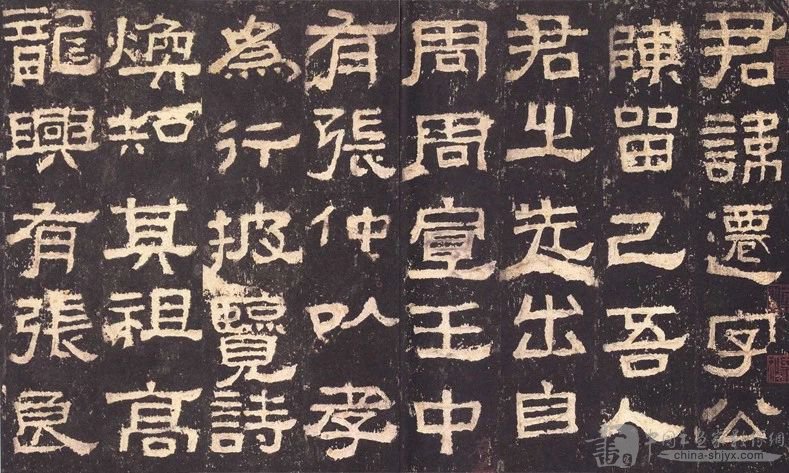 君諱遷字公
陳留己吾人
君之先出自
周周宣王中
有張仲以孝
為行披覽詩
煥知其祖高
龍興有張良
china-shjyx.com